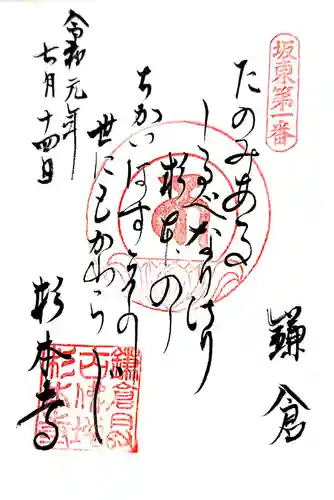 坂東第一番
鎌倉
たのみある
しるべなりけり
杉本の
ちかいはすゑの
世にもかわらじ
杉本寺
令和元年
七月十四日